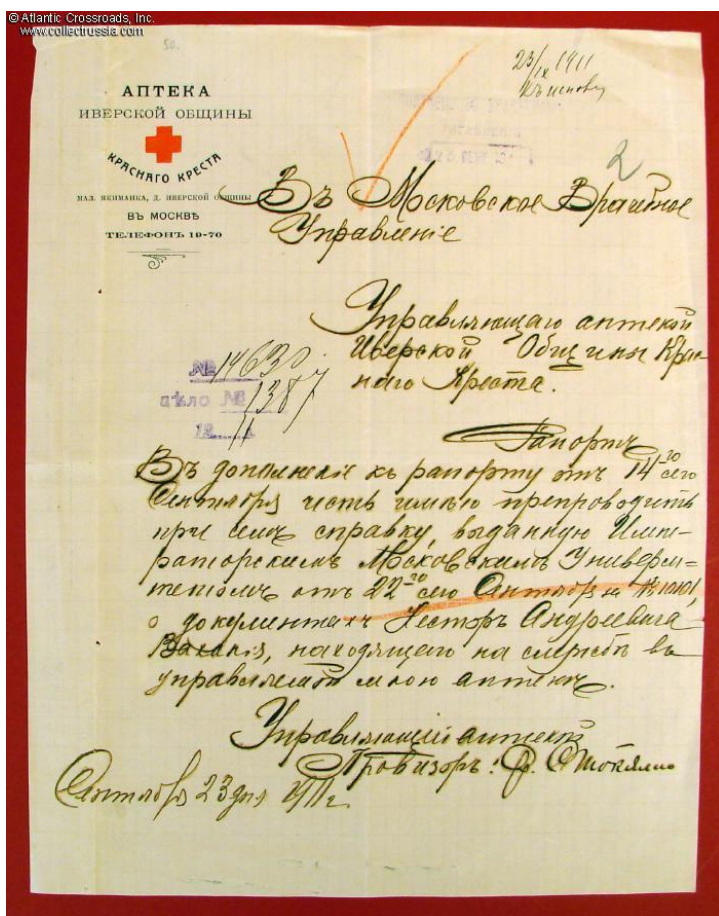 © Atlantic Crossroads, Inc.
www.collectrussia.com
50.
23/IX 1911
АПТЕКА
ИВЕРСКОЙ ОБЩИНЫ
КРАСНАГО КРЕСТА
МАЛ. ЯКИМАНКА, Д. ИВЕРСКОЙ ОБЩИНЫ
ВЪ МОСКВѢ
ТЕЛЕФОНЪ 19-70
2
Въ Московское Врачебное
Управленіе
Управляющаго аптекой
Иверской Общины Крас-
наго Креста.
№ 14630
дѣло № 1387
1911
Рапортъ
Въ дополненіе къ рапорту отъ 14го сего
Сентября честь имѣю препроводить
при семъ справку, выданную Импе-
раторскимъ Московскимъ Универси-
тетомъ отъ 22го сего Сентября №
о документахъ Несторъ Андреевича
находящего на службѣ въ
управляемой мною аптекѣ.
Управляющій аптекой
Провизоръ:
Сентября 23 дня 1911 г.